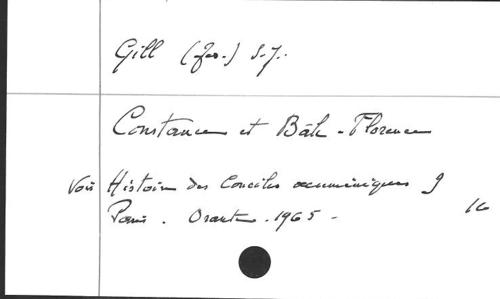 Gill (Jos.) S.J.
Constance et Bâle - Florence
Voir Histoire des Conciles œcuméniques 9
Paris. Orante. 1965 -
16